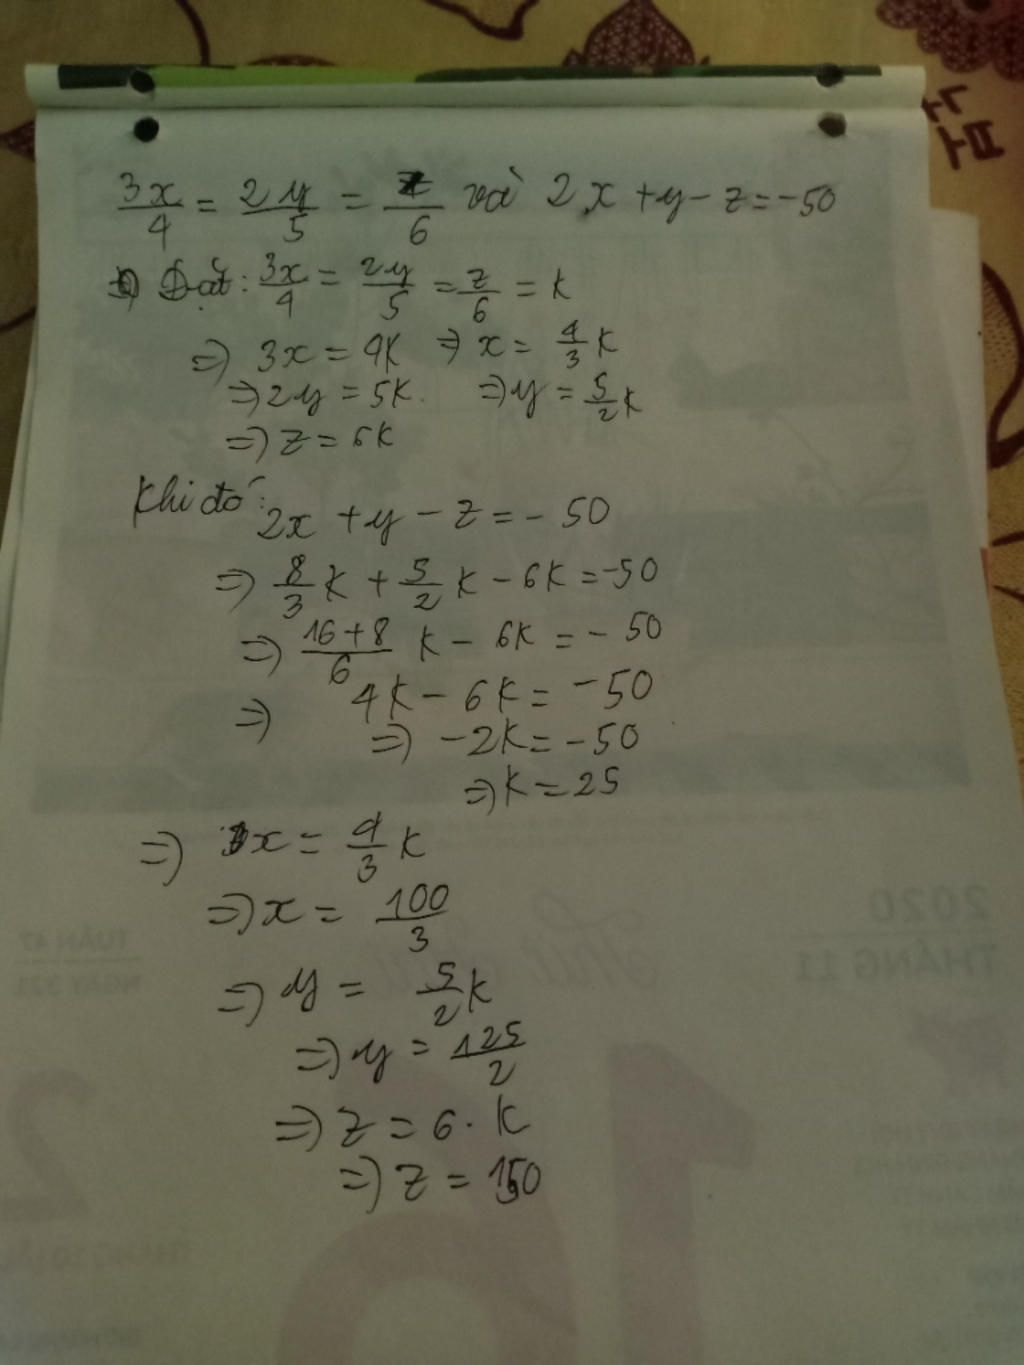 3x/4 = 2y/5 = z/6 và 2x + y - z = -50
Đặt: 3x/4 = 2y/5 = z/6 = k
=> 3x = 4k => x = 4/3 k
=> 2y = 5k. => y = 5/2 k
=> z = 6k
Khi đó:
2x + y - z = - 50
=> 8/3 k + 5/2 k - 6k = -50
=> 16+8/6 k - 6k = - 50
=> 4k - 6k = -50
=> -2k = -50
=> k = 25
=> x = 4/3 k
=> x = 100/3
=> y = 5/2 k
=> y = 125/2
=> z = 6 . k
=> z = 150
2020
THÁNG 11
TUẦN 47